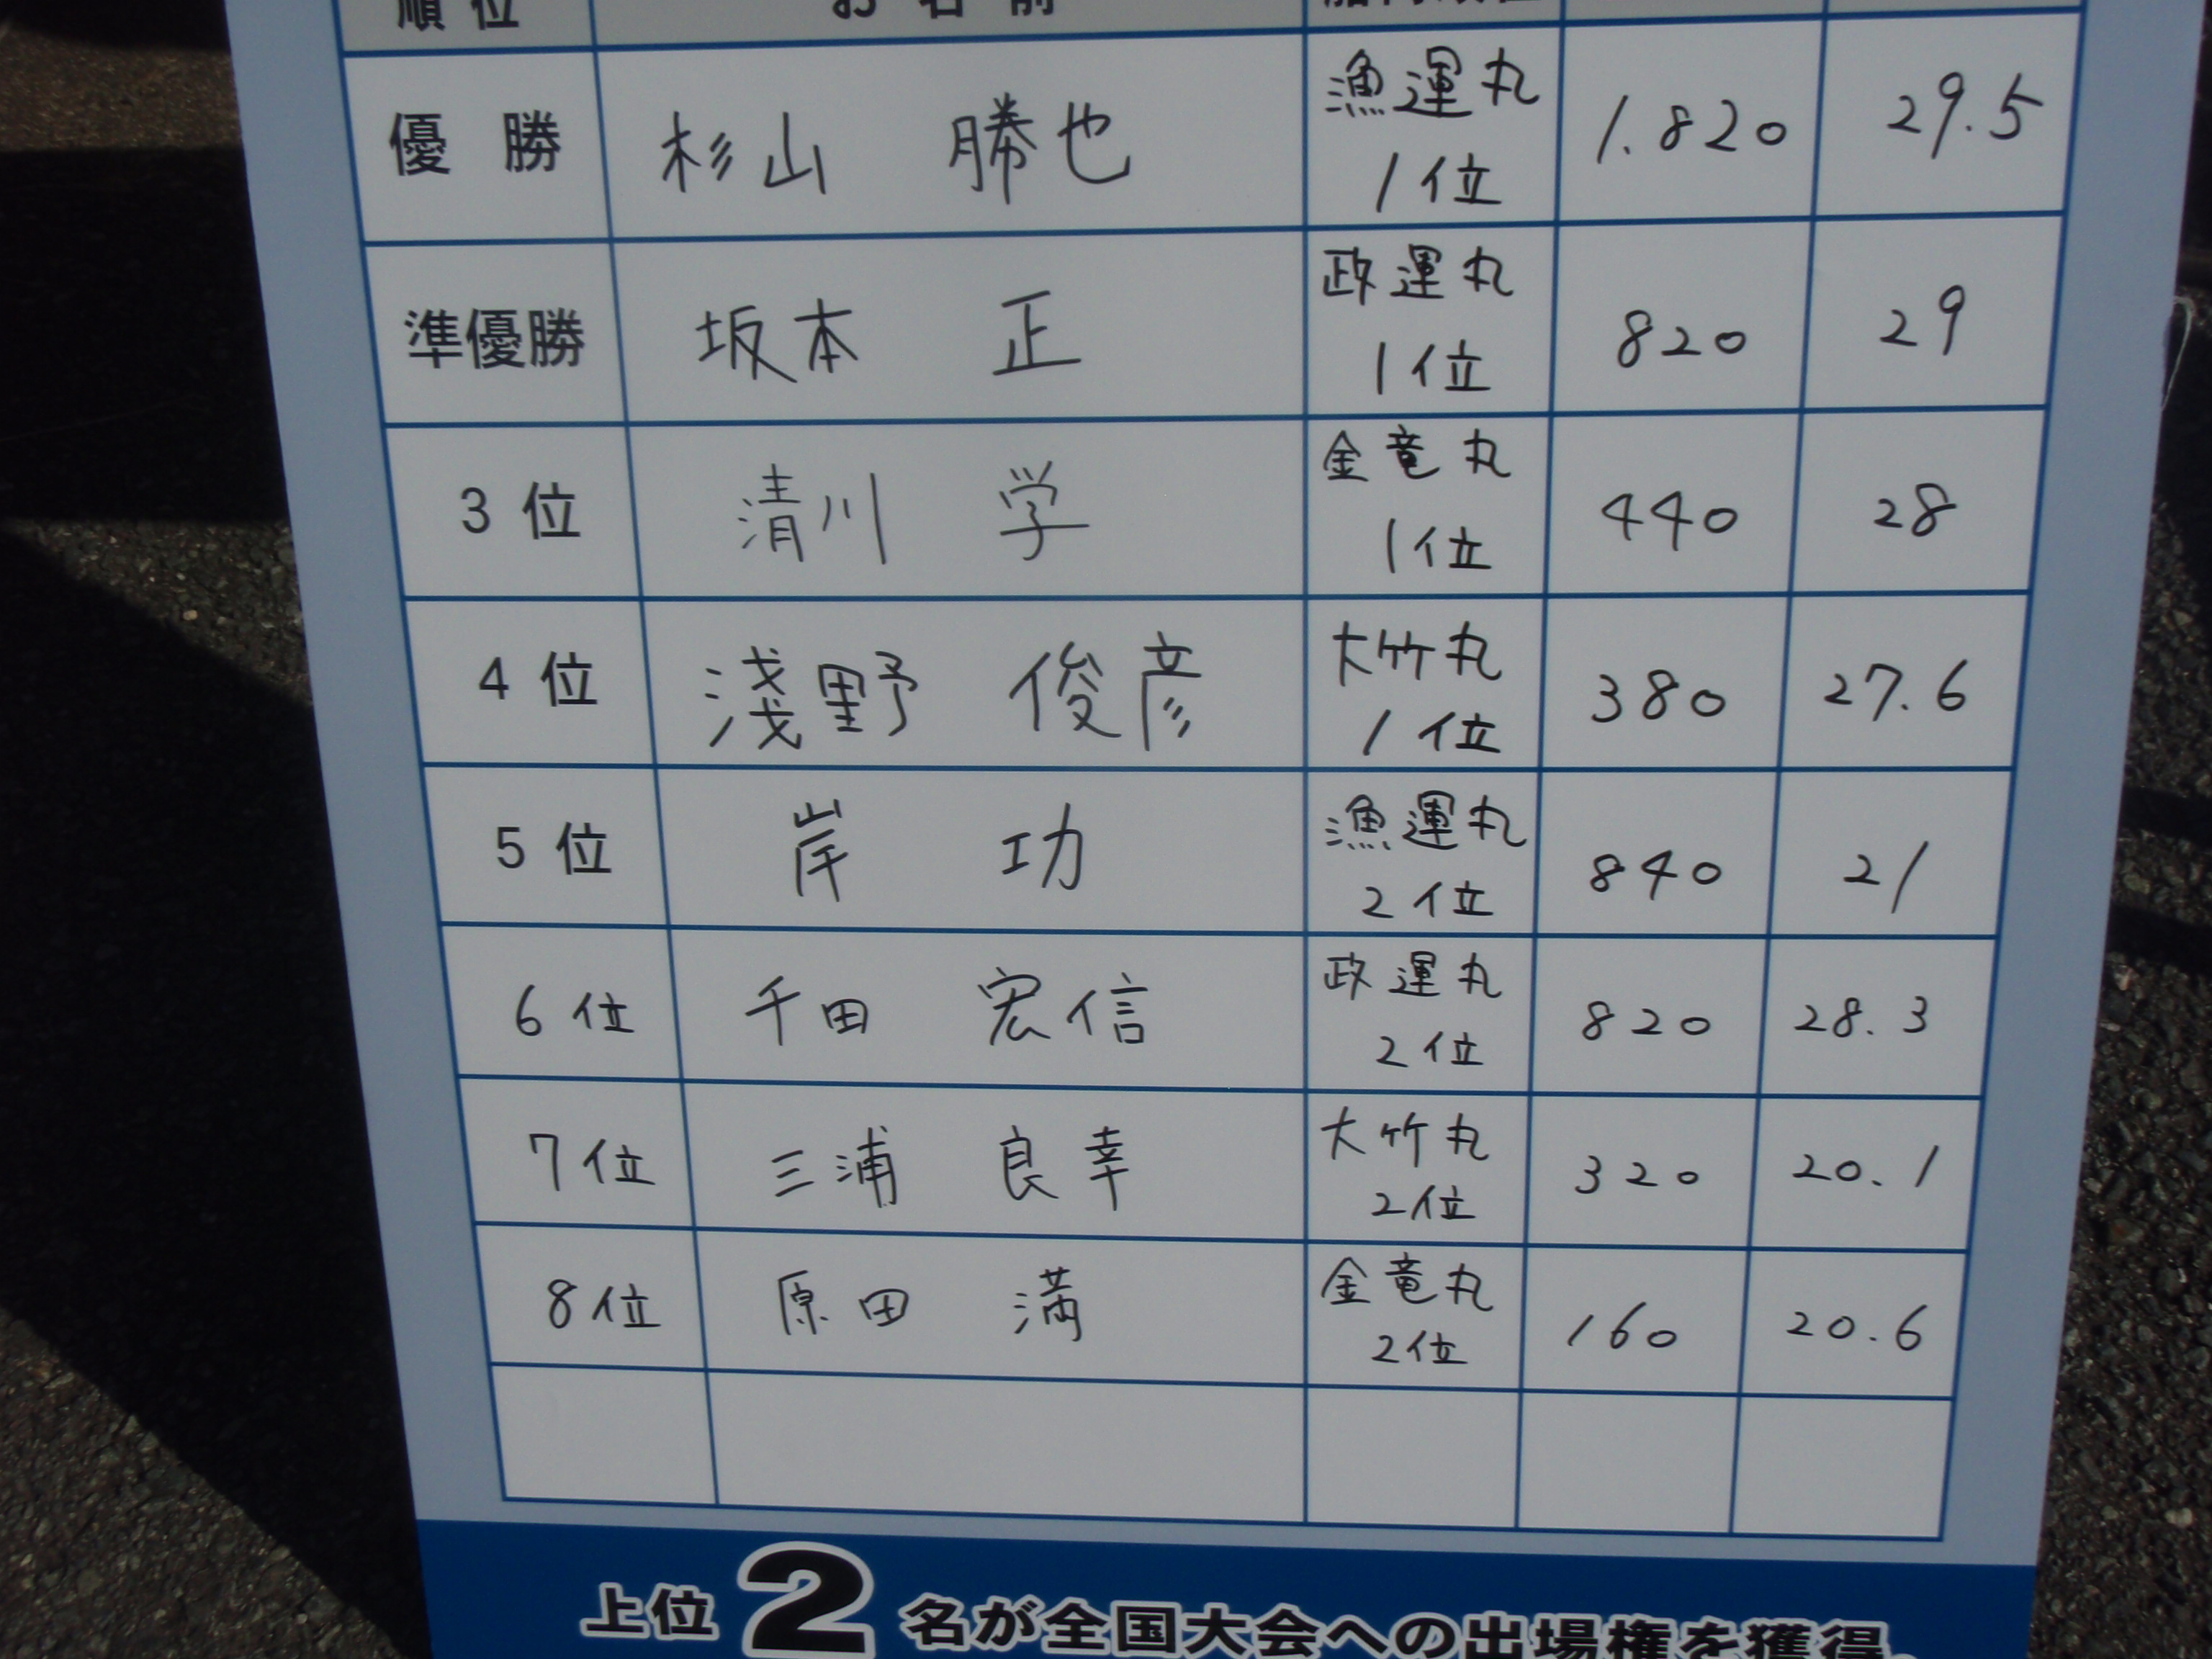 順位 お名前 船内順位
優勝 杉山 勝也 漁運丸 1位 1.820 29.5
準優勝 坂本 正 政運丸 1位 820 29
3位 清川 学 金竜丸 1位 440 28
4位 浅野 俊彦 大竹丸 1位 380 27.6
5位 岸 功 漁運丸 2位 840 21
6位 千田 宏信 政運丸 2位 820 28.3
7位 三浦 良幸 大竹丸 2位 320 20.1
8位 原田 満 金竜丸 2位 160 20.6
上位2名が全国大会への出場権を獲得。